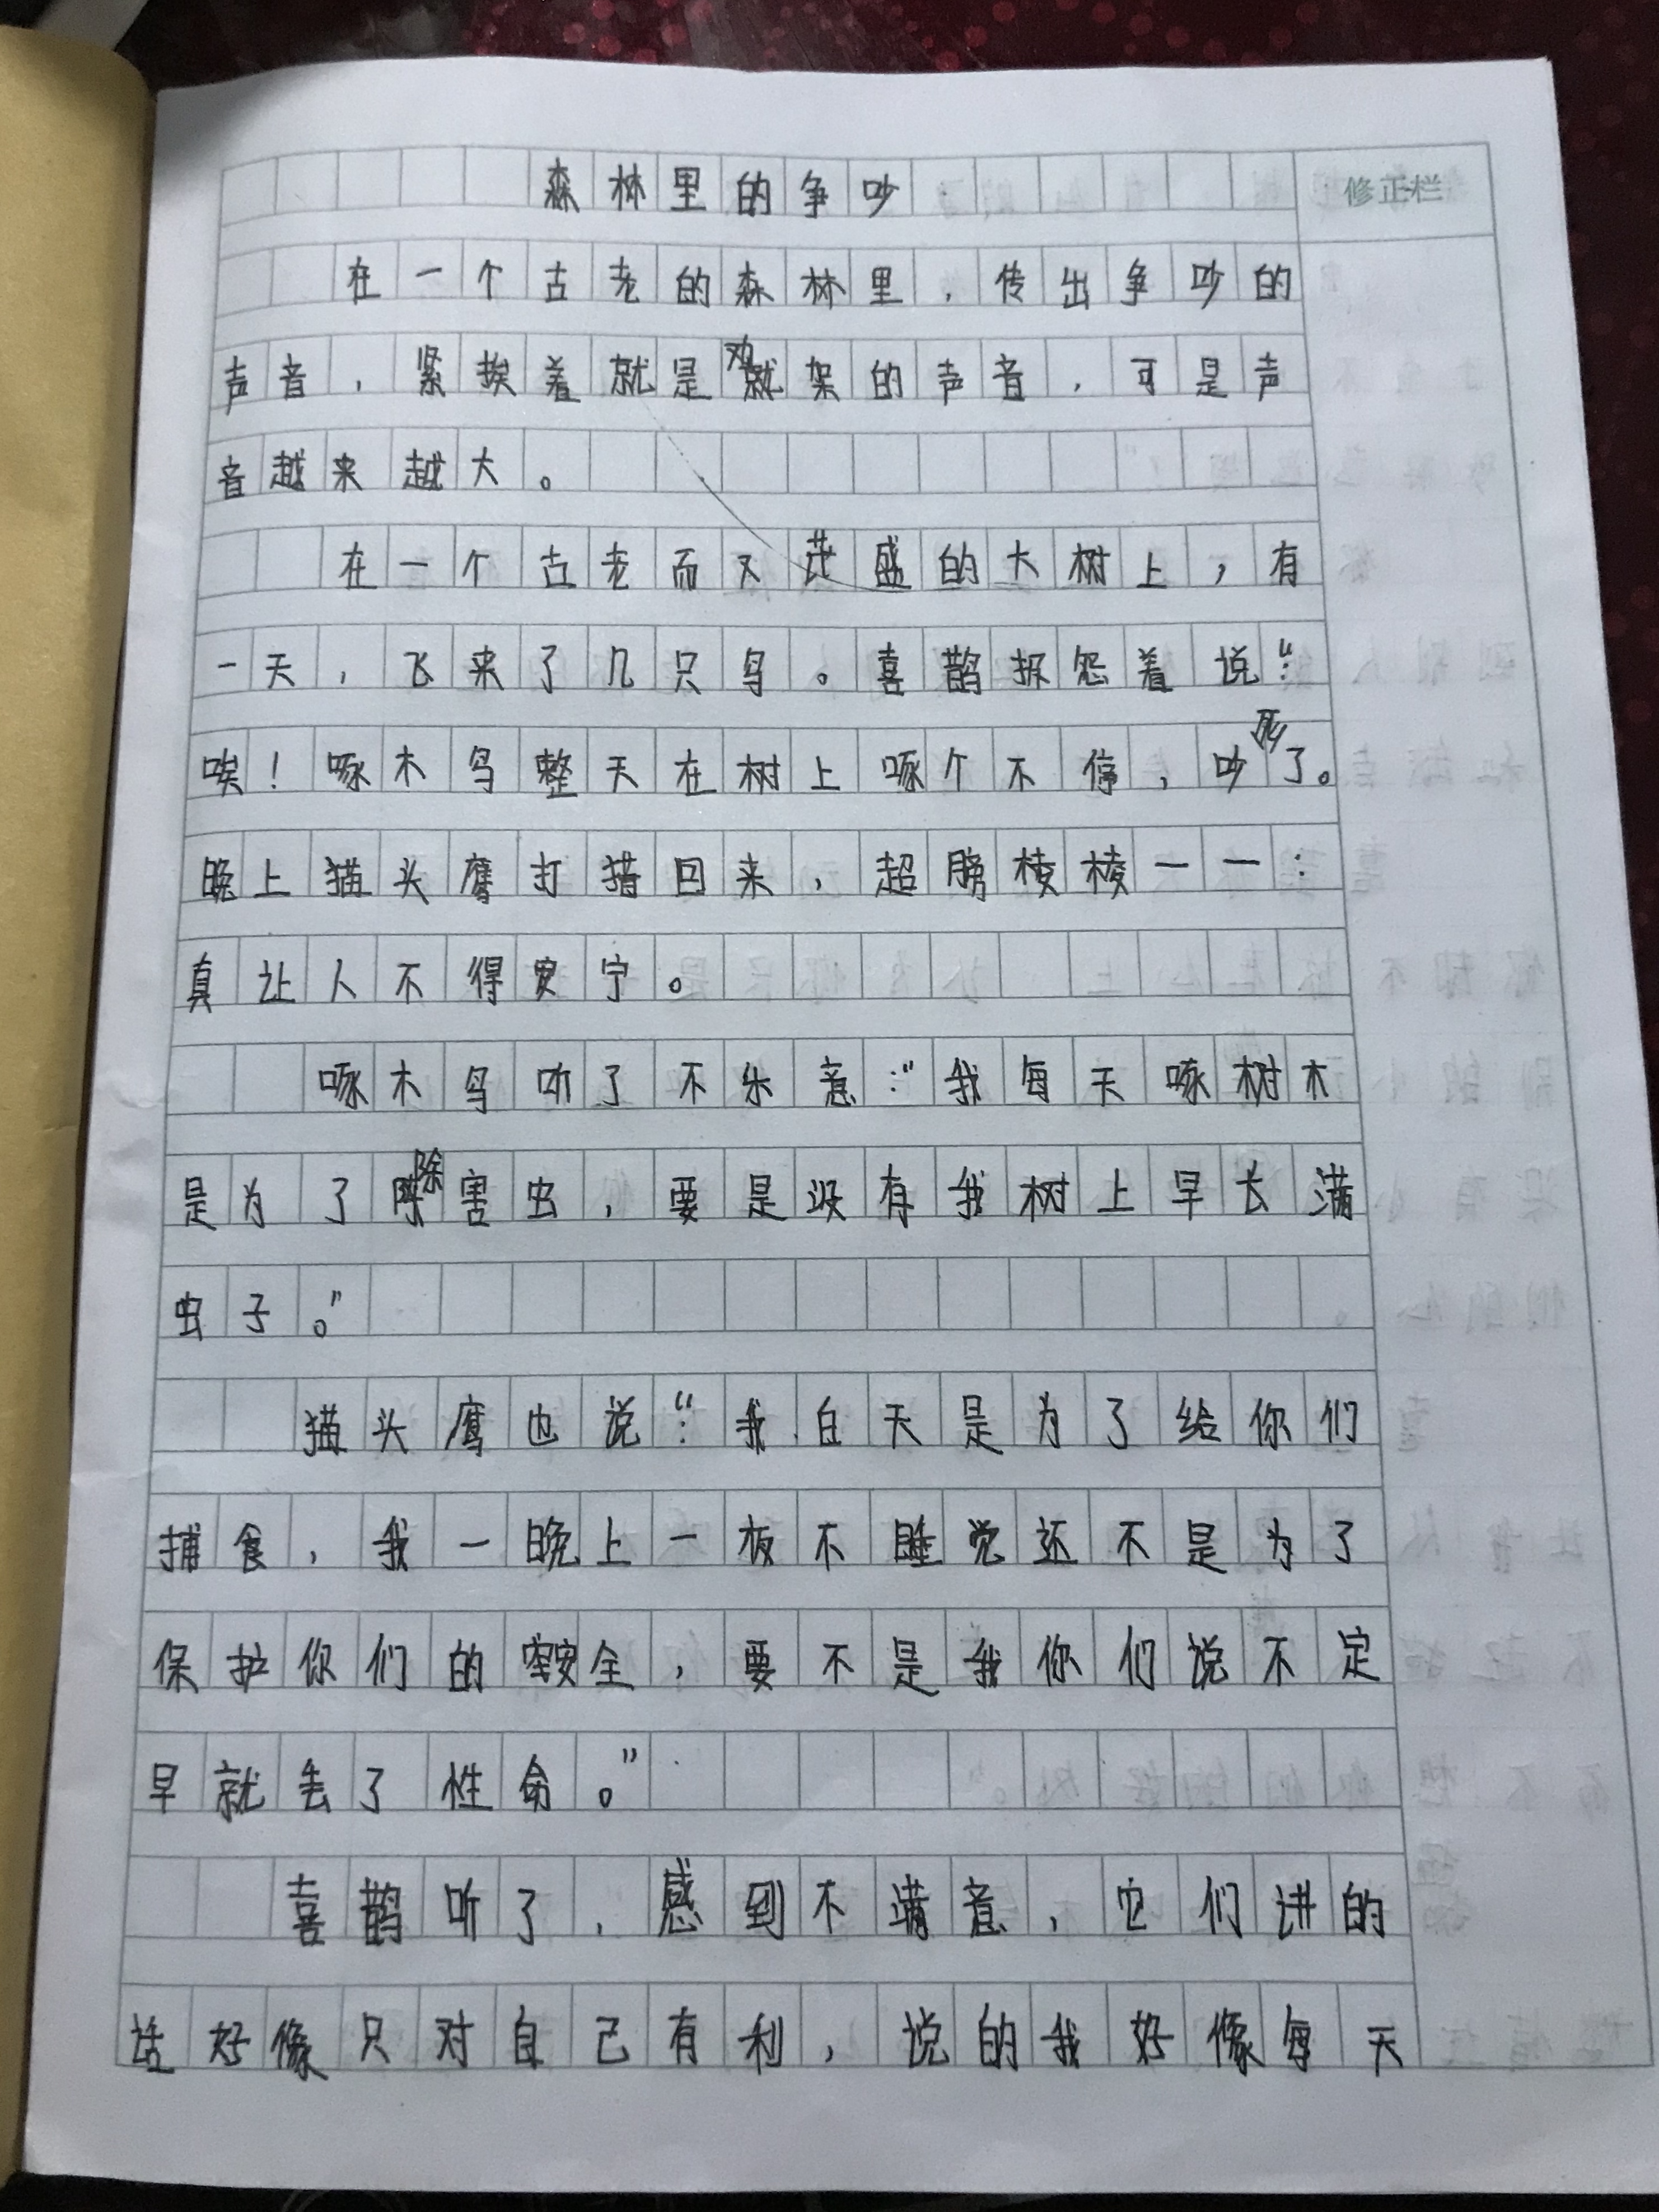 森林里的争吵
修正栏
在一个古老的森林里，传出争吵的
声音，紧挨着就是劝架的声音，可是声
音越来越大。
在一个古老而又茂盛的大树上，有
一天，飞来了几只鸟。喜鹊报怨着说：“
唉！啄木鸟整天在树上啄个不停，吵死了。
晚上猫头鹰打猎回来，翅膀棱棱一一：
真让人不得安宁。
啄木鸟听了不乐意：“我每天啄树木
是为了除害虫，要是没有我树上早长满
虫子。”
猫头鹰也说：“我白天是为了给你们
捕食，我一晚上一夜不睡觉还不是为了
保护你们的安全，要不是我你们说不定
早就丢了性命。”
喜鹊听了，感到不满意，它们讲的
话好像只对自己有利，说的我好像每天